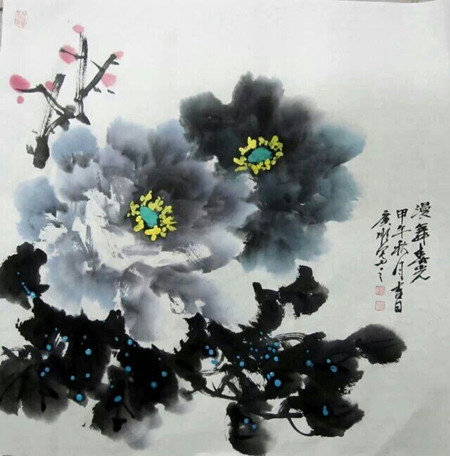 漫舞春光
甲午秋月吉日
写之